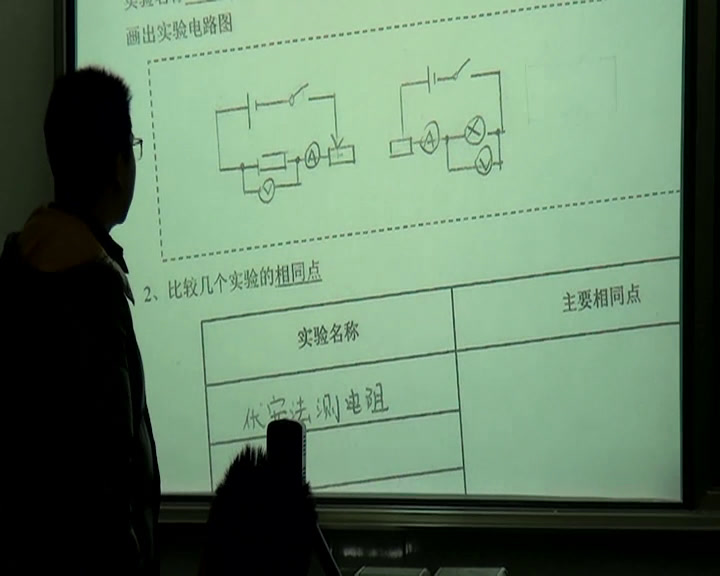 实验名称
画出实验电路图
A
V
A
V
2、比较几个实验的相同点
实验名称
主要相同点
伏安法测电阻